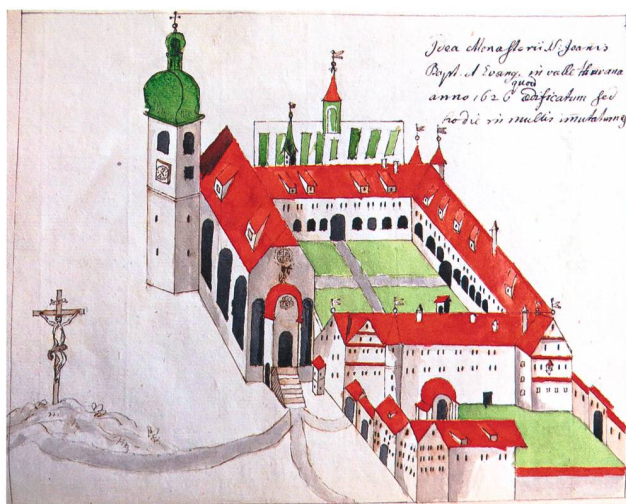 Idea Monasterii S. Joannis
Bapt. et Evang. in valle
quod
anno 1626 ædificatum sed
hodie in multis immutatum